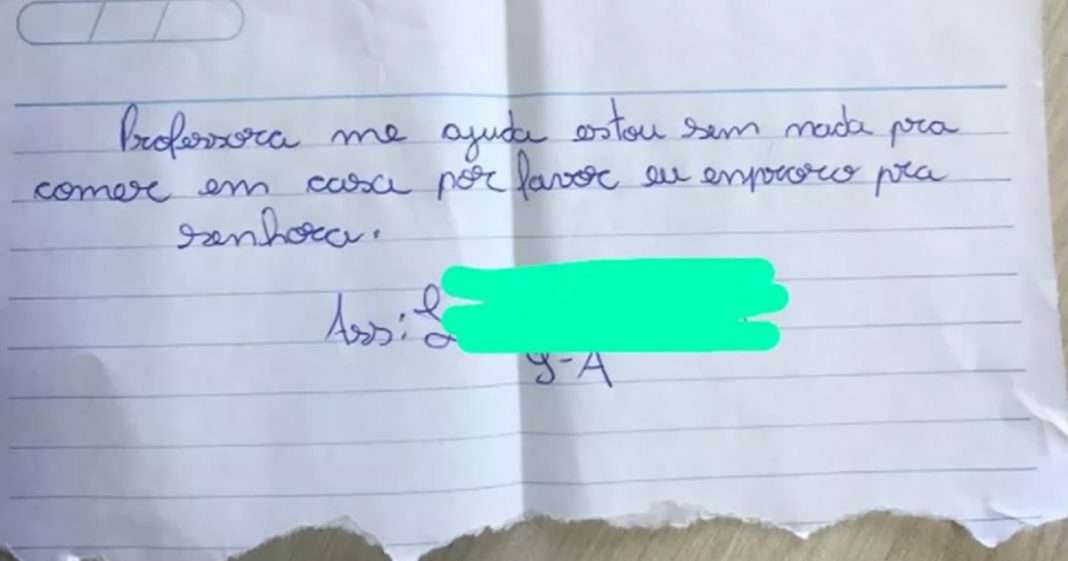 Professora me ajuda estou sem nada pra
comer em casa por favor eu emploro pra
senhora.
Ass:
9-A